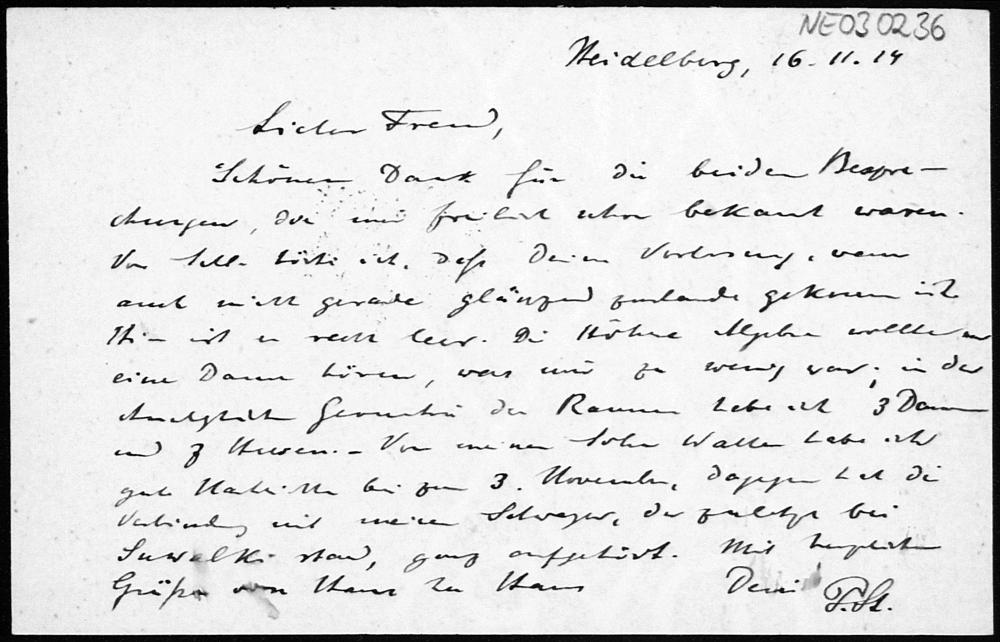 NE030236
Heidelberg, 16.11.14
Lieber Freund,
Schönen Dank für die beiden Bespre-
chungen, die mir freilich schon bekannt waren.
Von hörte ich, daß Deine Vorlesung, wenn
auch nicht gerade glänzend zustande gekommen ist.
Hier ist es recht leer. Die Höhere Algebra wollte nur
eine Dame hören, was mir zu wenig war; in der
Analytischen Geometrie des Raumes habe ich 3 Damen
und 3 Herren. – Von meinem Sohn Walter habe ich
gute Nachrichten bis zum 3. November, dagegen hat die
Verbindung mit meinem Schwager, der zuletzt bei
Suwalki stand, ganz aufgehört. Mit herzlichen
Grüßen von Haus zu Haus Dein P. St.